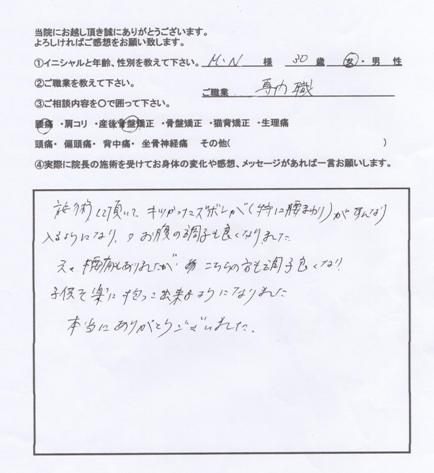 当院にお越し頂き誠にありがとうございます。
よろしければご感想をお願い致します。
①イニシャルと年齢、性別を教えて下さい。 H・N 様 30 歳 女・男 性
②ご職業を教えて下さい。 ご職業 専門職
③ご相談内容を〇で囲って下さい。
腰痛 ・肩コリ ・産後骨盤矯正 ・骨盤矯正 ・猫背矯正 ・生理痛
頭痛・ 偏頭痛・ 背中痛・ 坐骨神経痛 その他( )
④実際に院長の施術を受けてお身体の変化や感想、メッセージがあれば一言お願いします。
施術して頂いて、キツかったズボンが(特に腰まわり)がすんなり
入るようになり、お腹の調子も良くなりました
腰痛もありましたが こちらの方も調子良くなり
子供を楽に抱っこ出来るようになりました
本当にありがとうございました。